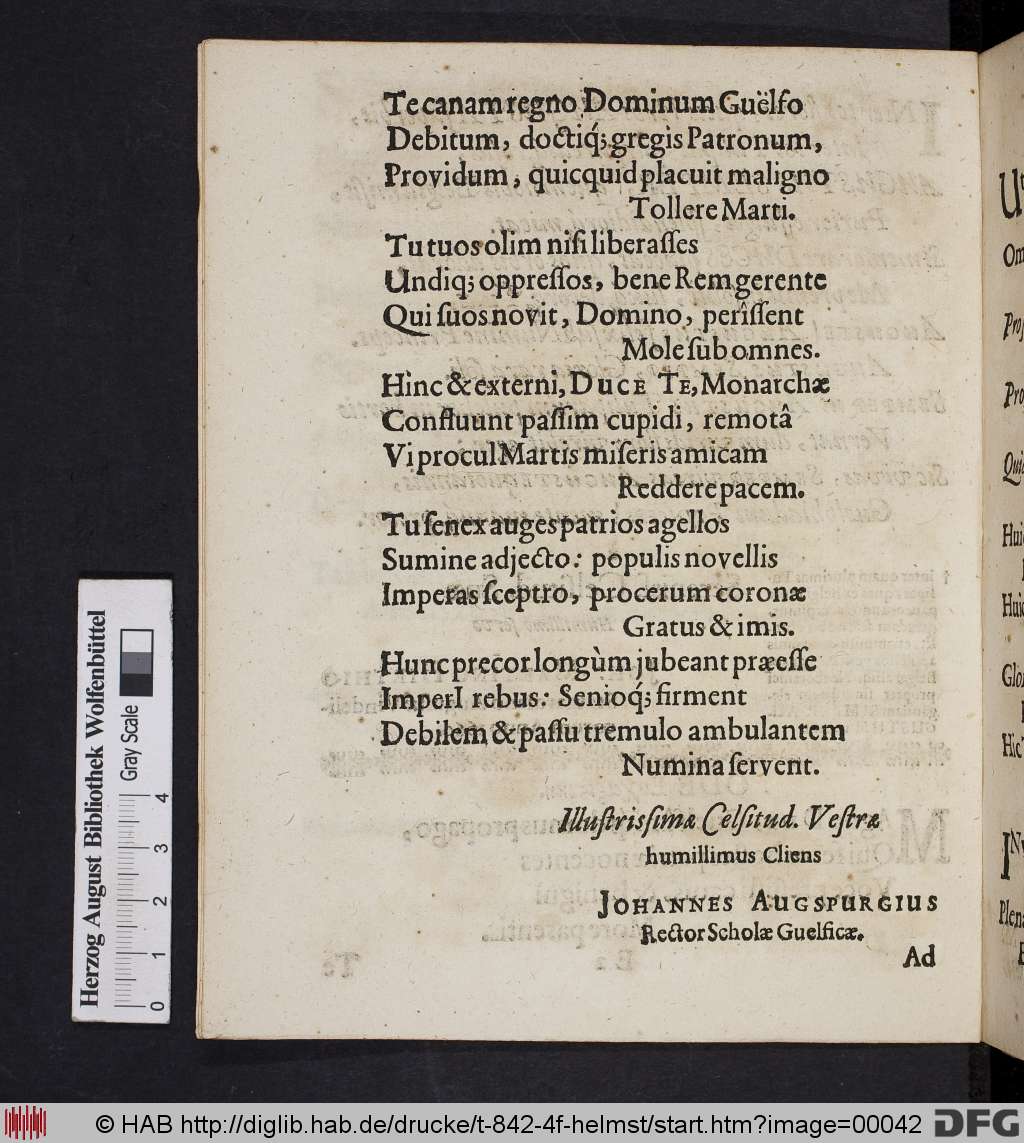 Te canam regno Dominum Guëlfo
Debitum, doctiq́; gregis Patronum,
Providum, quicquid placuit maligno
Tollere Marti.
Tu tuos olim nisi liberaſſes
Undiq; oppreſſos, bene Rem gerente
Qui ſuos novit, Domino, perîſſent
Mole ſub omnes.
Hinc & externi, DUCE TE, Monarchæ
Confluunt paſſim cupidi, remotâ
Vi procul Martis miſeris amicam
Reddere pacem.
Tu ſenex auges patrios agellos
Sumine adjecto: populis novellis
Imperas ſceptro, procerum coronæ
Gratus & imis.
Hunc precor longùm jubeant præeſſe
ImperI rebus: Senioq́; firment
Debilem & paſſu tremulo ambulantem
Numina ſervent.
Illuſtrisſimæ Celſitud. Veſtræ
humillimus Cliens
JOHANNES AUGSPURGIUS
Rector Scholæ Guelficæ.
Ad
Herzog August Bibliothek Wolfenbüttel
Gray Scale
0 1 2 3 4
© HAB http://diglib.hab.de/drucke/t-842-4f-helmst/start.htm?image=00042
DFG